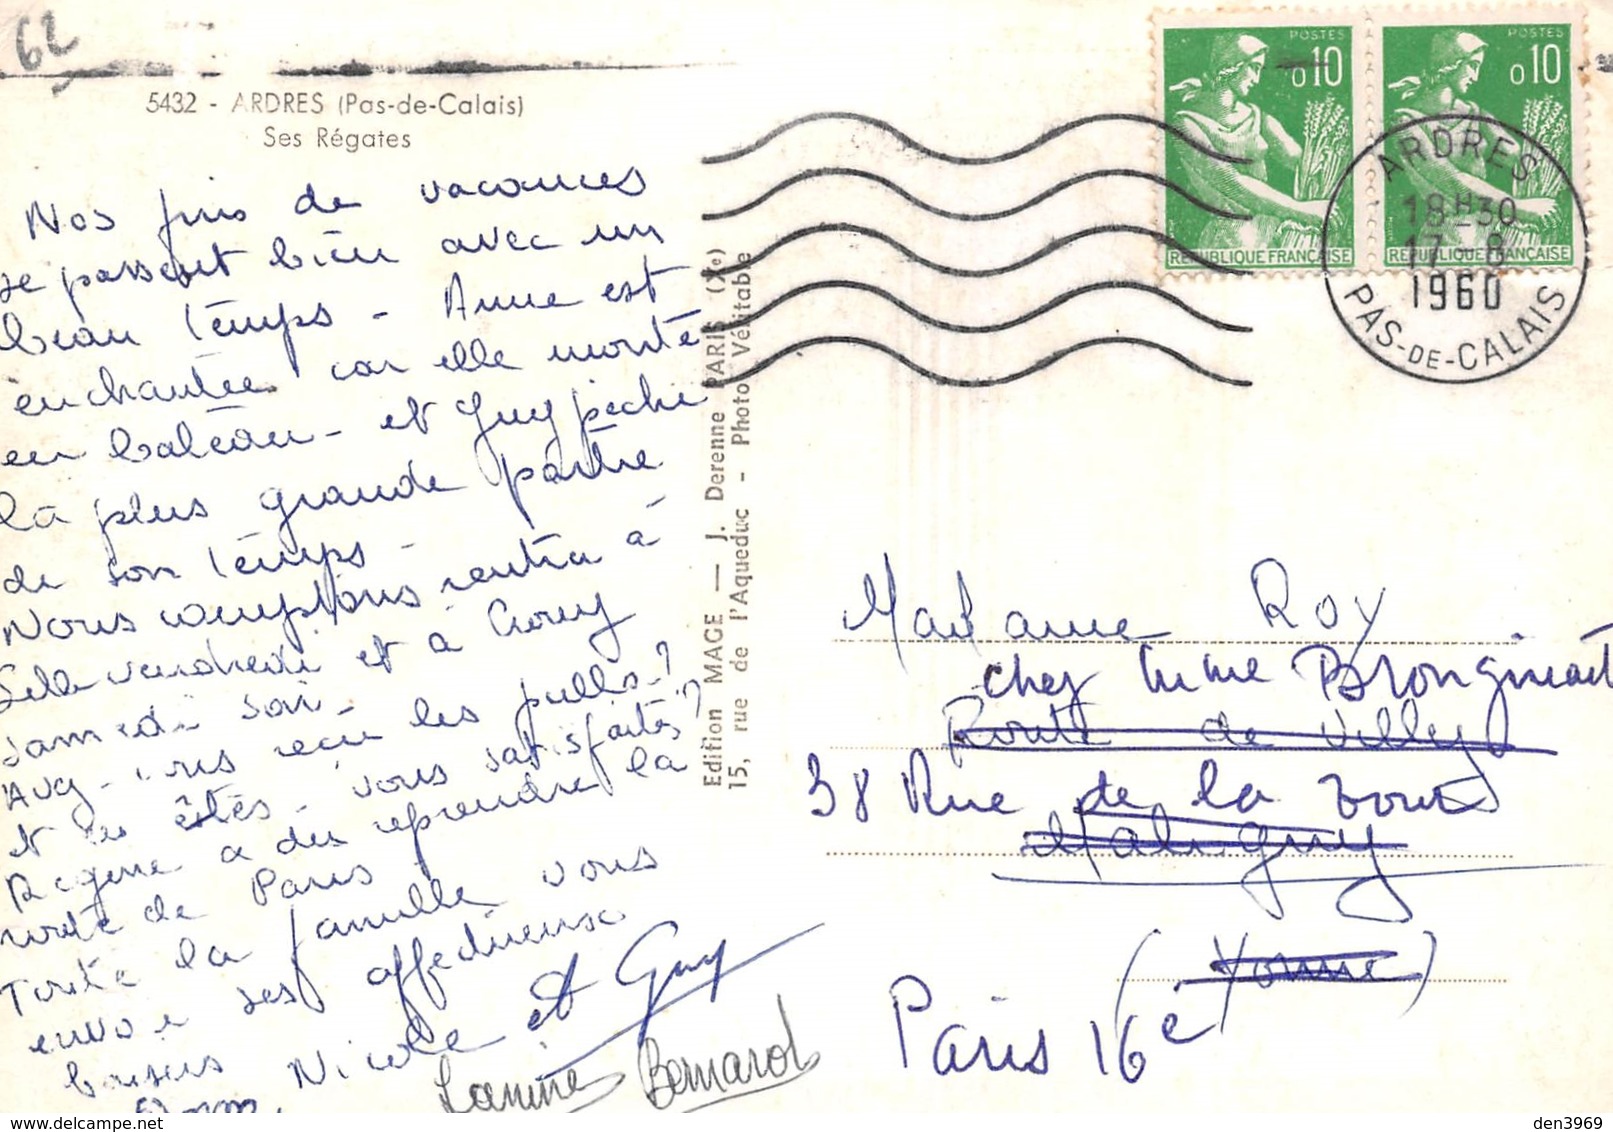 62
5432 - ARDRES (Pas-de-Calais)
Ses Régates
Nos fins de vacances
se passent bien avec un
beau temps - Anne est
enchantée car elle monte
en bateau - et Guy pêche
la plus grande partie
de son temps -
Nous comptons rentrer à
Lille vendredi et à Crouy
samedi soir -
Avez-vous reçu les pulls ?
et les êtes-vous satisfaites ?
a du reprendre la
route de Paris
Toute la famille vous
envoie ses affectueuses
baisers Nicole et Guy
Bernard
Edition MAGE — J. Derenne PARIS (Xe)
15, rue de l'Aqueduc - Photo Véritable
POSTES
0,10
RÉPUBLIQUE FRANÇAISE
POSTES
0,10
RÉPUBLIQUE FRANÇAISE
ARDRES
18H30
17 - 8
1960
PAS-DE-CALAIS
Madame ROY
chez Mme Brongniart
Route de Villy
38 Rue de la Tour
Maligny
(Yonne)
Paris 16e
den3969